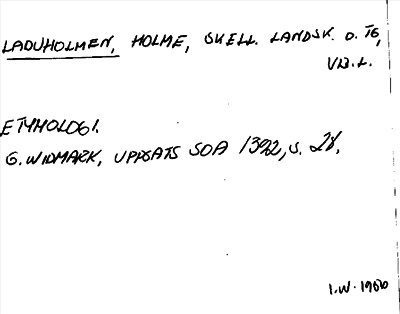 LADUHOLMEN, HOLME, SKELL. LANDSK. O. TG,
VB.L.
ETYMOLOGI.
G. WIDMARK, UPPSATS SOA 1392, S. 28.
I.W. 1960